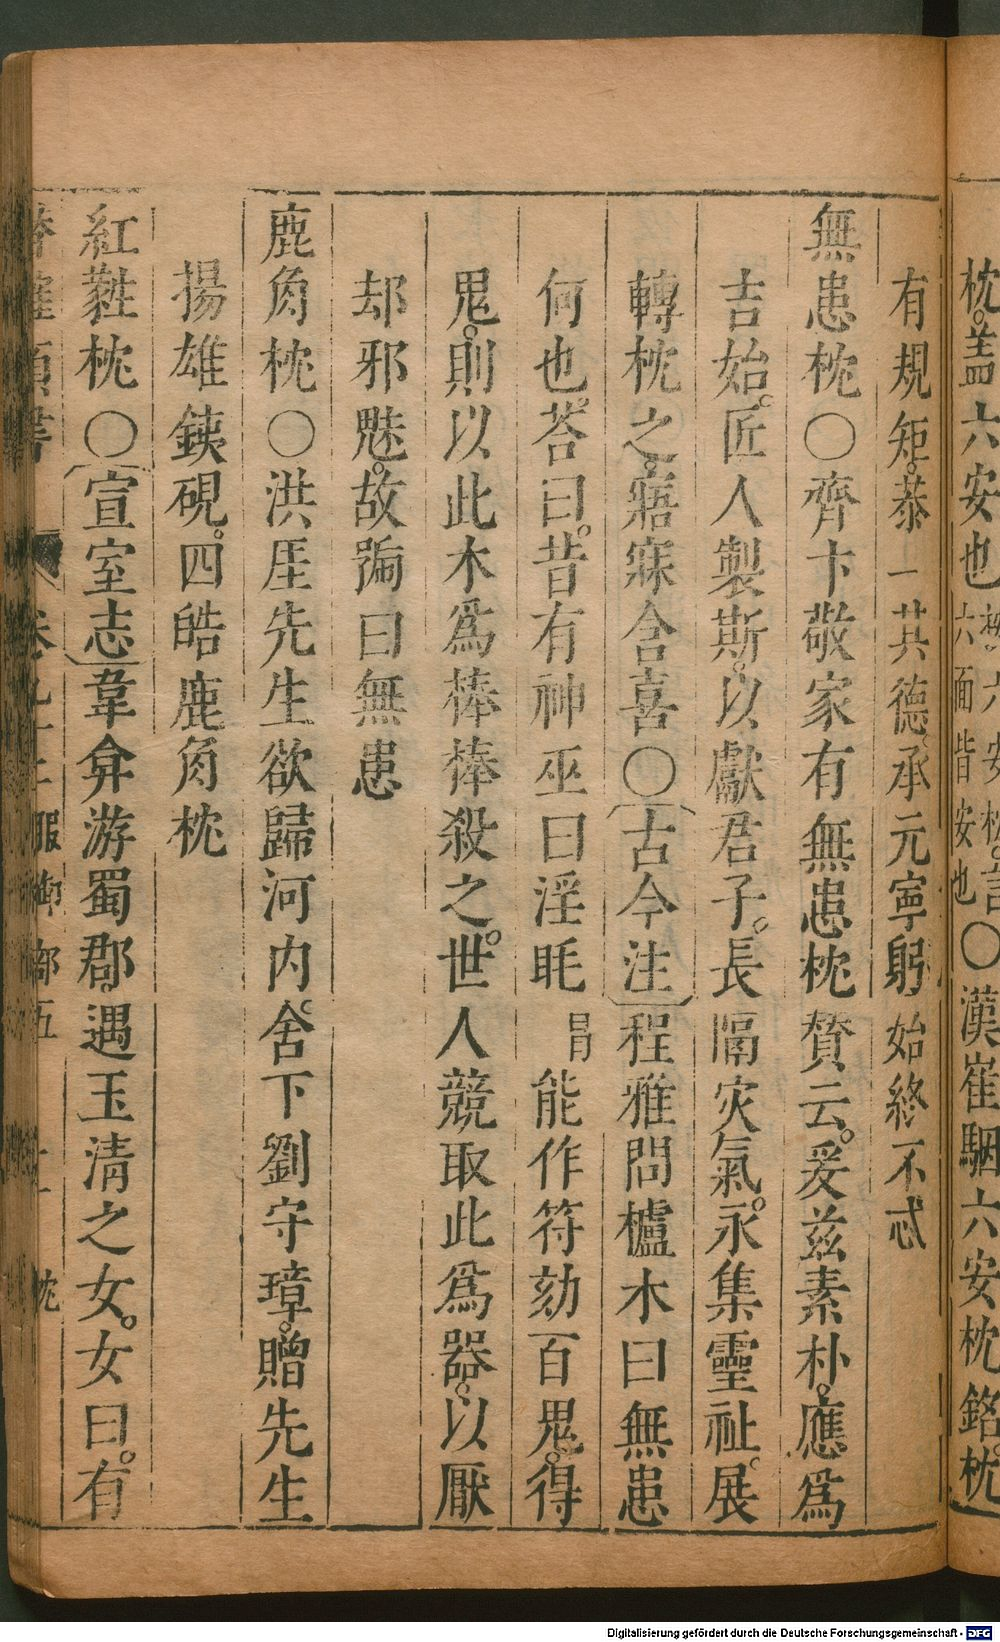 枕。蓋六安也 枕。言六面皆安也 〇漢崔駰六安枕銘枕
有規矩。恭一其德。承元寧躬始終不忒
無患枕〇齊卞敬家有無患枕贊云。爰茲素朴。應爲
吉始。匠人製斯。以獻君子。長隔灾氣。永集靈祉。展
轉枕之。寤寐含喜〇〔古今注〕程雅問櫨木曰無患
何也。荅曰。昔有神巫曰淫眊 能作符劾百鬼。得
鬼。則以此木爲棒棒殺之。世人競取此爲器。以厭
却邪魅。故號曰無患
鹿角枕〇洪厓先生欲歸河内。舍下劉守璋。贈先生
揚雄鐵硯。四皓鹿角枕
紅蕤枕〇〔宣室志〕韋弇游蜀郡遇玉清之女。女曰。有
服御部五 枕
Digitalisierung gefördert durch die Deutsche Forschungsgemeinschaft - DFG